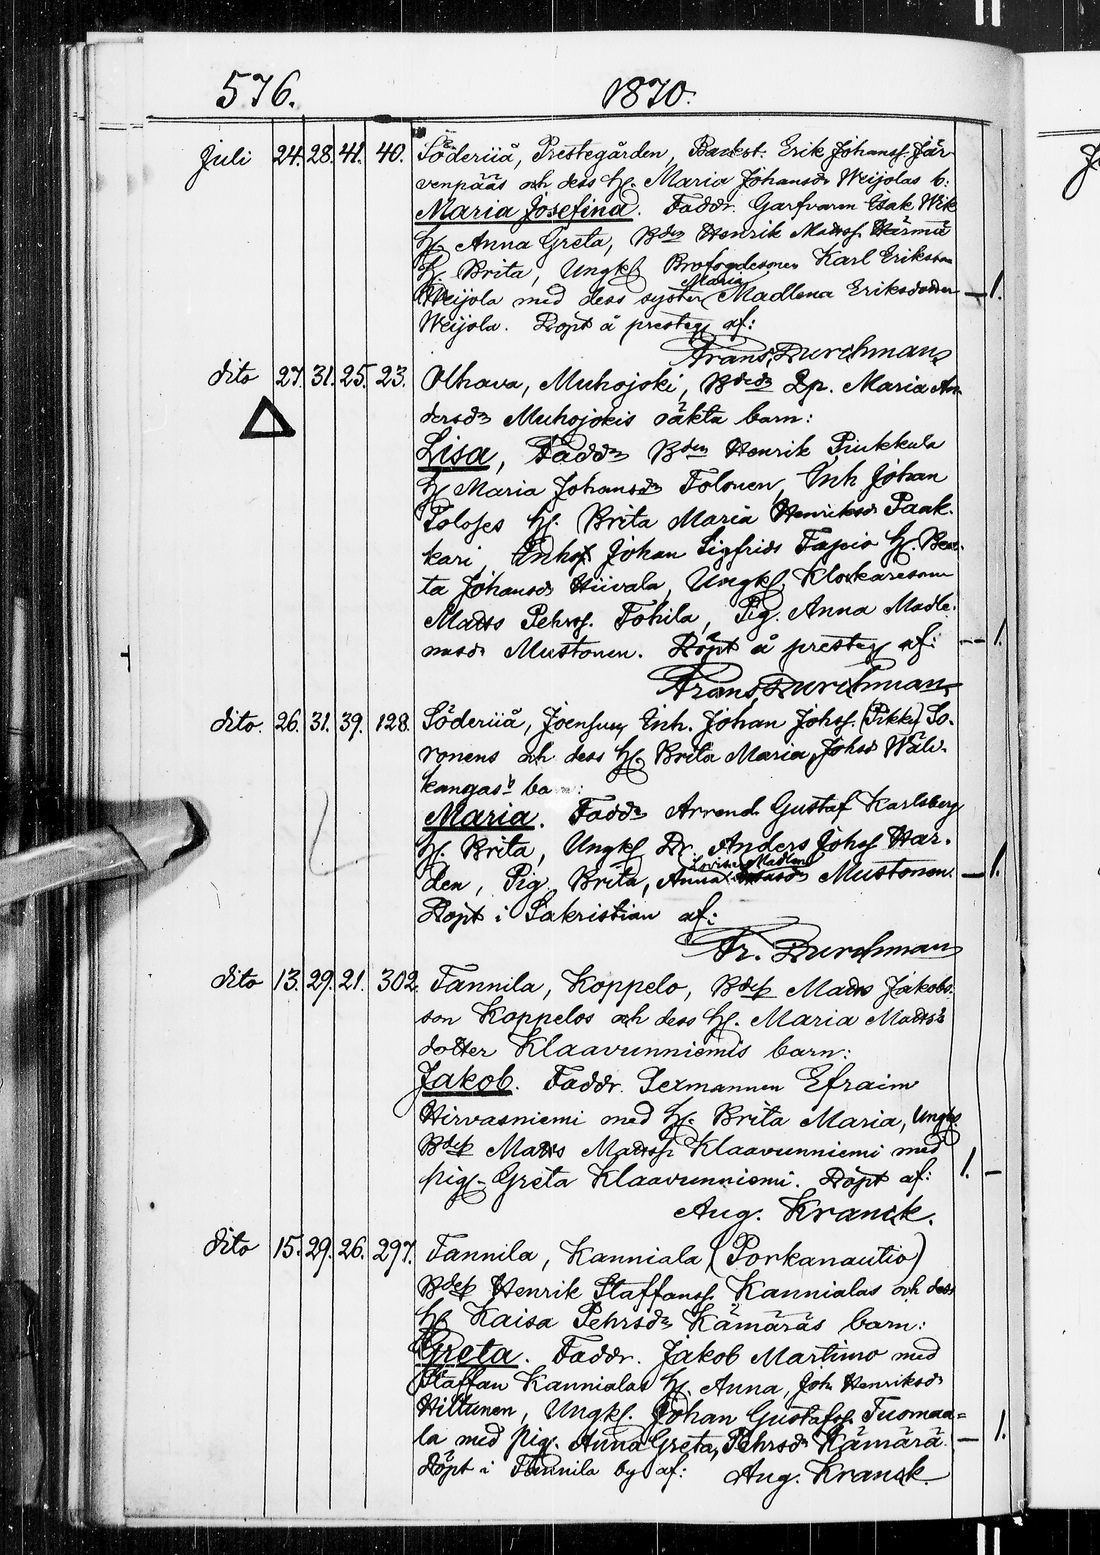 576. 1870.
Juli 24. 28. 41. 40. Söderiiå, Prestegården, Backst. Erik Johanss. Jär
venpääs och dess h. Maria Johansdr Weijolas b:
Maria Josefina. Faddr. Garfvaren Isak Wik
h. Anna Greta, Bden Henrik Matss. Härmä
h. Brita, Ungk. Karl Eriksson
Weijola med dess syster Maria Madlena Eriksdotter — 1.
Weijola. Döpt å presteg. af:
Frans Durchman
dito 27. 31. 25. 23. Olhava, Muhojoki, Bdedr Lp. Maria An
dersdr Muhojokis oäkta barn:
Lisa, Faddr Bden Henrik Piukkula
h. Maria Johansdr Tolonen, Inh Johan
h. Brita Maria Henriksdr Paak-
kari, Inhs Johan Sigfrids Tapio h. Bea-
ta Johansdr Hiivala, Ungk. Klockaresonen
Matts Pehrss. Tohila, Pig. Anna Madle-
nasdr Mustonen. Döpt å presteg af: — 1.
Frans Durchman
dito. 26. 31. 39. 128. Söderiiå, Joensuu, Inh. Johan Johss. (Pikky) So-
ronens och dess h. Brita Maria Johsdr Wäli-
kangas's ba n:
Maria. Faddr Arrend. Gustaf Karlsberg
h. Brita, Ungk. Dr. Anders Johss Har-
den, Pig. Brita, Anna Lovisa Madlena Mustonen. — 1.
Döpt i Sakristian af:
Fr. Durchman
dito 13. 29. 21. 302. Tannila, Koppelo, Bdes Matts Jakobs
son Koppelos och dess h. Maria Matts
dotter Klaavunniemis barn:
Jakob. Faddr. Sexmannen Efraim
Hirvasniemi med h. Brita Maria, Ungk.
Bdes Matts Matss. Klaavunniemi med
pig. Greta Klaavunniemi. Döpt af: 1. —
Aug. Kranck.
dito 15. 29. 26. 297. Tannila, Kanniala (Porkanautio)
Bdes Henrik Staffanss. Kannialas och dess
h. Kaisa Pehrsdr Kämäräs barn:
Greta. Faddr. Jakob Martimo med
Staffan Kannialas h. Anna, Joh. Henriksdr
Hiltunen, Ungk. Johan Gustafss. Tuomaa=
la med pig. Anna Greta, Pehrsdr Kämärä. — 1.
Döpt i Tannila by af: Aug. Kranck